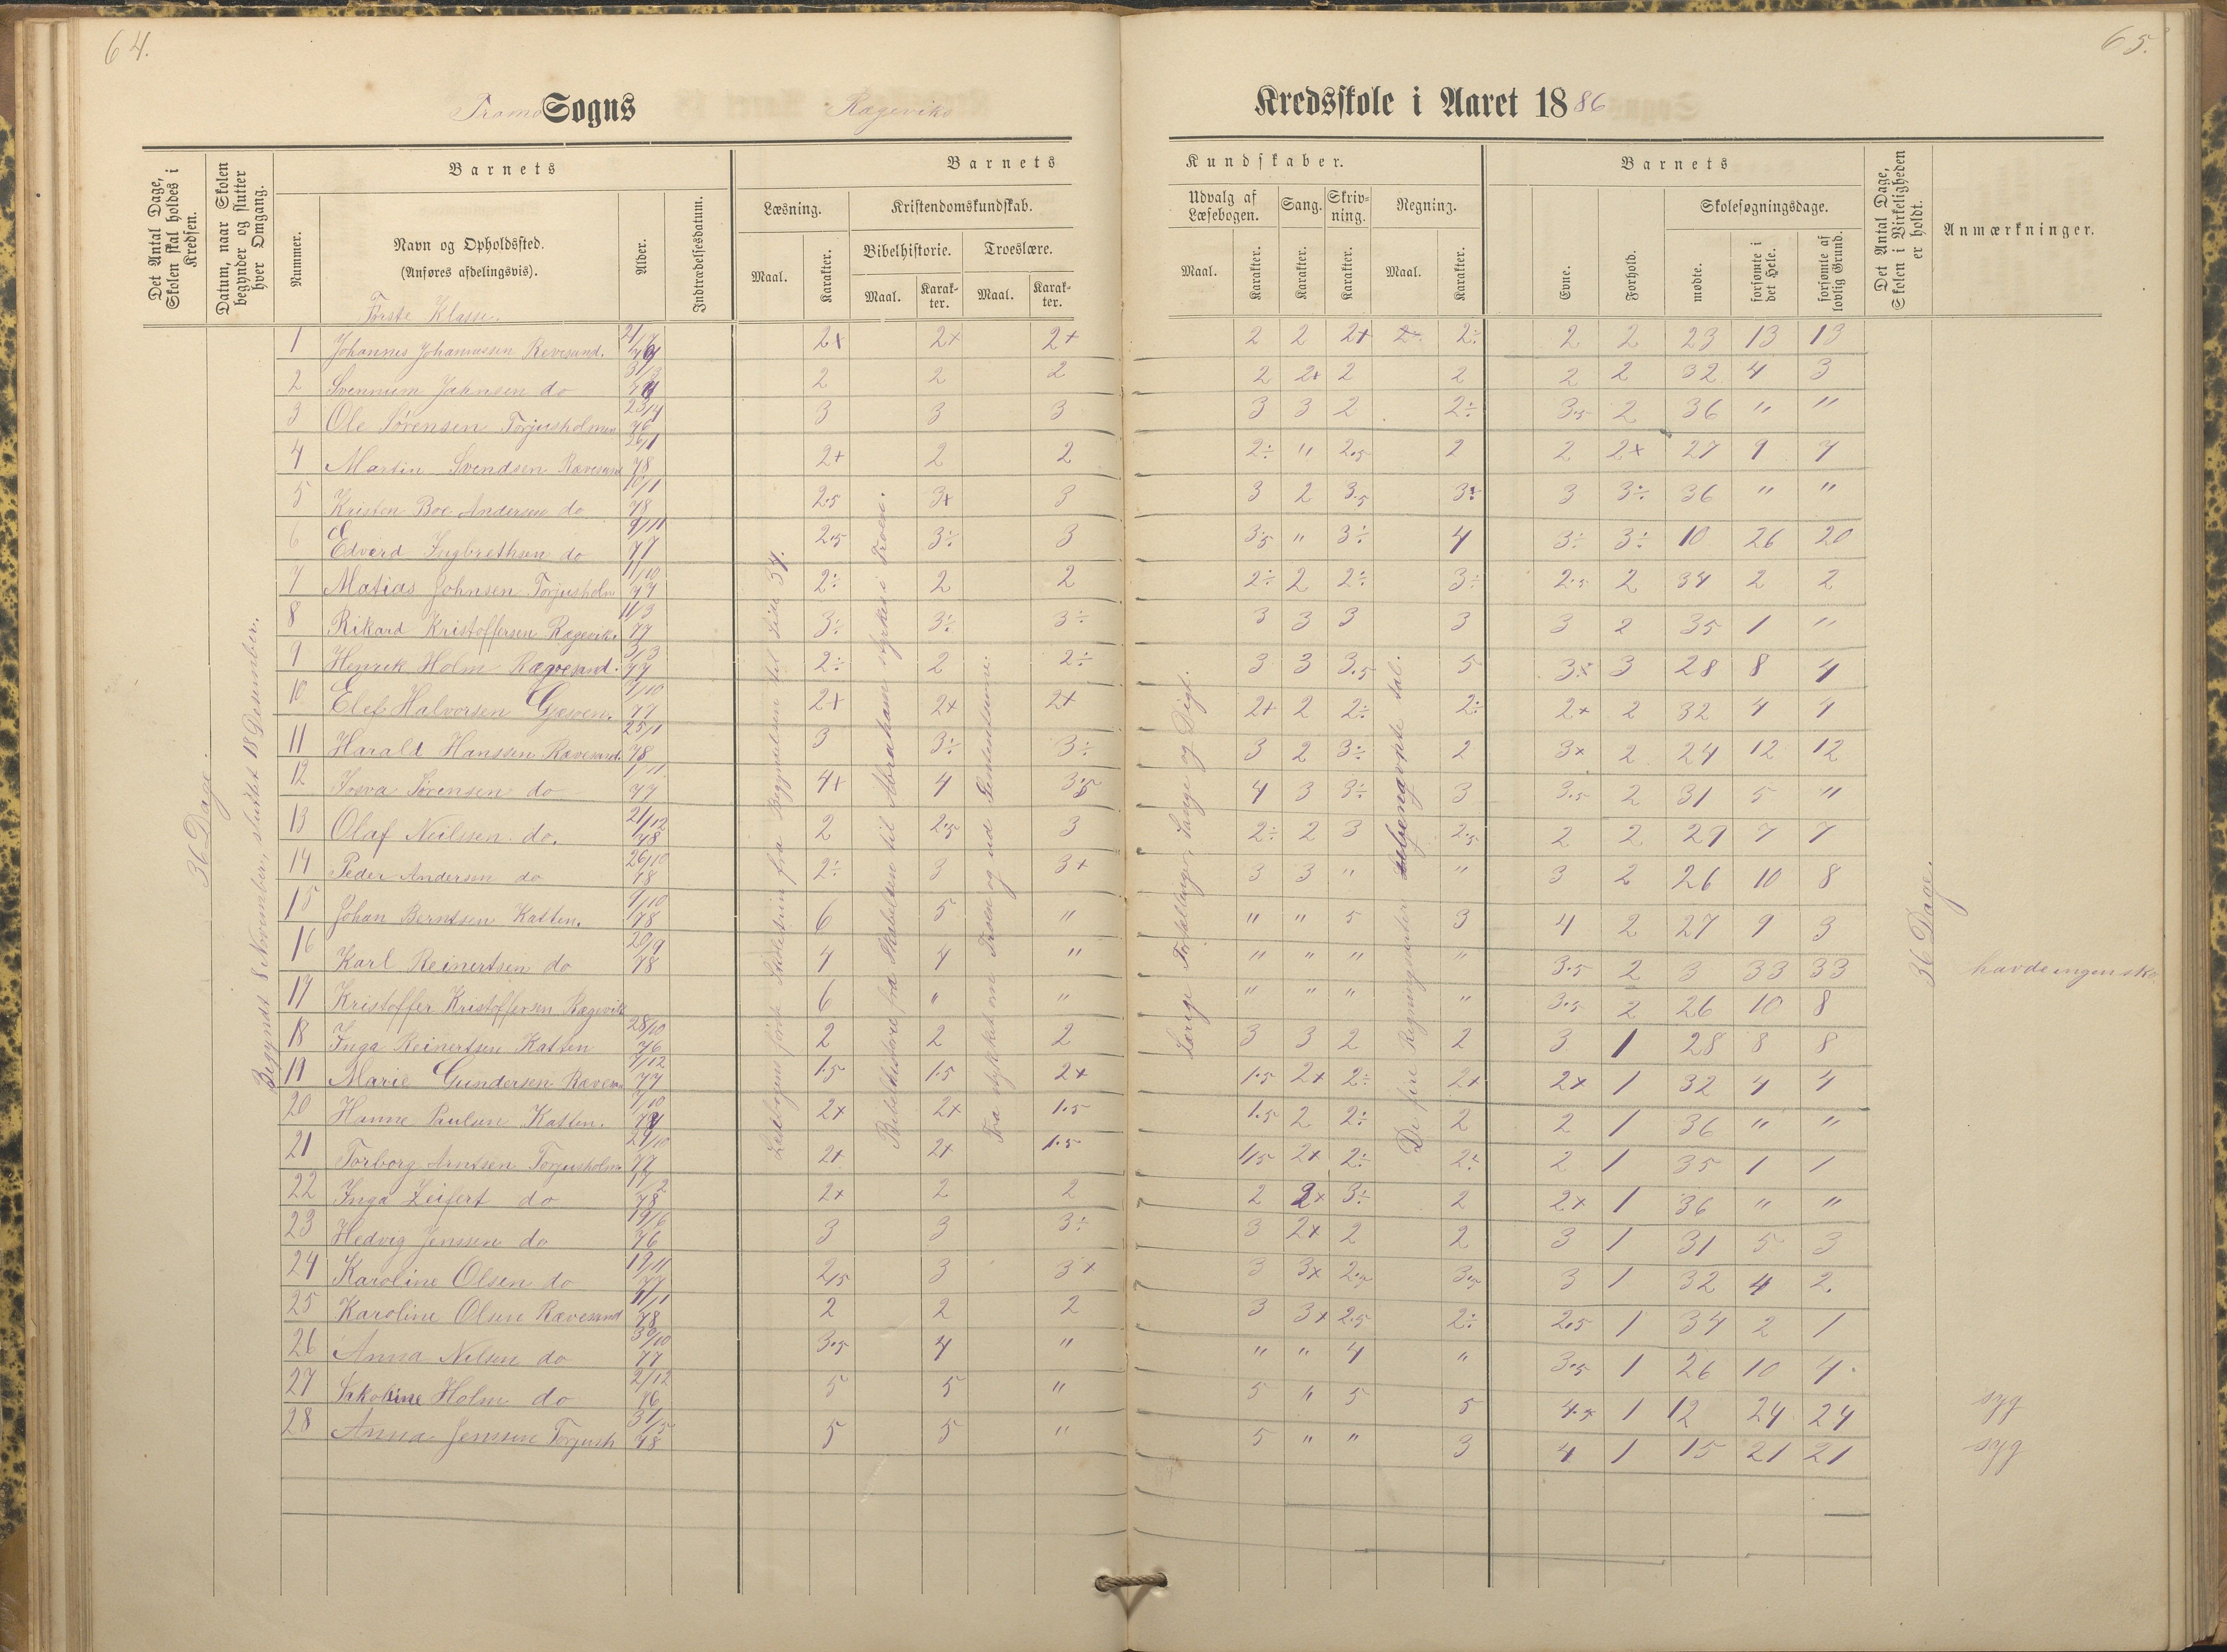 64.
65.
Tromø Sogns Rægeviks Kredsskole i Aaret 1886
Det Antal Dage, Skolen skal holdes i Kredsen.
Datum, naar Skolen begynder og slutter hver Omgang.
Barnets
Nummer.
Navn og Opholdssted.
(Anføres afdelingsvis).
Alder.
Indtrædelsesdatum.
Barnets Kundskaber.
Læsning.
Maal.
Karakter.
Kristendomskundskab.
Bibelhistorie.
Troeslære.
Maal.
Karak-ter.
Maal.
Karak-ter.
Udvalg af Læsebogen.
Sang.
Skriv-ning.
Regning.
Maal.
Karakter.
Karakter.
Karakter.
Maal.
Karakter.
Barnets
Evne.
Forhold.
Skolesøgningsdage.
mødte.
forsømte i det Hele.
forsømte af lovlig Grund.
Det Antal Dage, Skolen i Virkeligheden er holdt.
Anmærkninger.
Første Klasse.
36 Dage.
Begyndt 8 November, sluttet 18 Desember.
De fire Regningsarter
36 Dage.
1 Johannes Johannessen Revesand. 2+ 2+ 2+ 2 2 2+ 2÷ 2÷ 2 2 23 13 13
2 Svennum Jahnsen do 2 2 2 2 2+ 2 2 2 2 32 4 3
3 Ole Sørensen Torjusholmen 23/4 76 3 3 3 3 3 2 2÷ 3.5 2 36 " "
4 Martin Svendsen Rævesand 26/1 78 2+ 2 2 2÷ " 2.5 2 2 2+ 27 9 7
5 Kristen Boe Andersen do 10/1 78 2.5 3+ 3 3 2 3.5 3÷ 3 3÷ 36 " "
6 Edvard Ingbrethsen do 9/11 77 2.5 3÷ 3 3.5 " 3÷ 4 3÷ 3÷ 10 26 20
7 Matias Johnsen Torjusholm 11/10 77 2÷ 2 2 2÷ 2 2÷ 3÷ 2.5 2 34 2 2
8 Rikard Kristoffersen Rægevik. 11/3 77 3÷ 3÷ 3÷ 3 3 3 3 3 2 35 1 "
9 Henrik Holm Rægvesand. 3/3 77 2÷ 2 2÷ 3 3 3.5 5 3÷ 3 28 8 4
10 Elef Halvorsen Gjesøen. 7/10 77 2+ 2+ 2+ 2+ 2 2÷ 2÷ 2+ 2 32 4 4
11 Harald Hanssen Rævesand. 25/1 78 3 3÷ 3÷ 3 2 3÷ 2 3+ 2 24 12 12
12 Josva Sørensen do 1/11 77 4+ 4 3.5 4 3 3÷ 3 3.5 2 31 5 "
13 Olaf Neilssen do. 21/12 78 2 2.5 3 2÷ 2 3 2.5 2 2 29 7 7
14 Peder Andersen do 26/10 78 2÷ 3 3+ 3 3 " " 3 2 26 10 8
15 Johan Berntsen Katten. 9/10 78 6 5 " " " 5 3 4 2 27 9 3
16 Karl Reinertsen do 20/9 78 4 4 " " " " " 3.5 2 3 33 33 havde ingen sko
17 Kristoffer Kristoffersen Rægevik 6 " " " " " " 3.5 2 26 10 8
18 Inga Reinertsen Katten 28/10 76 2 2 2 3 3 2 2 3 1 28 8 8
19 Marie Gundersen Ravesand 7/12 77 1.5 1.5 2+ 1.5 2+ 2÷ 2+ 2+ 1 32 4 4
20 Hanne Paulsen Katten. 2+ 2+ 1.5 1.5 2 2÷ 2 2 1 36 " "
21 Torborg Arntsen Torjusholm 29/10 77 2+ 2+ 1.5 1.5 2+ 2÷ 2÷ 2 1 35 1 1
22 Inga Leifert do 17/2 78 2+ 2 2 2 2+ 3÷ 2 2+ 1 36 " "
23 Hedvig Jenssen do 19/6 76 3 3 3÷ 3 2+ 2 2 3 1 31 5 3
24 Karoline Olsen do 19/11 77 2.5 3 3+ 3 3+ 2.5 3.5 3 1 32 4 2.
25 Karoline Olsen Rævesand 4/11 78 2 2 2 3 3+ 2.5 2÷ 2.5 1 34 2 1
26 Anna Nilsen do 30/10 77 3.5 4 " " " 4 " 3.5 1 26 10 4.
27 Jakobine Holm do 2/12 76 5 5 " 5 " 5 5 4.5 1 12 24 24 syg
28 Anna Jenssen Torjush 31/5 78 5 5 " 5 " " 3 4 1 15 21 21 syg